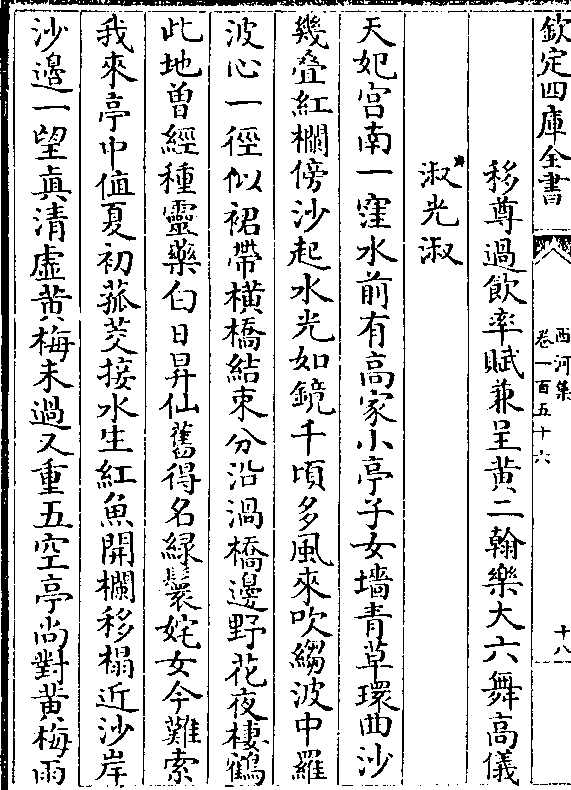 欽定四庫全書
西河集
卷一百五十六
十八
移尊過飲率賦兼呈黃二翰樂大六舞高儀
淑光淑
天妃宫南一窪水前有高家小亭子女墻青草環曲沙
幾叠紅欄傍沙起水光如鏡千頃多風來吹縐波中羅
波心一徑似裙帶横橋結束分沿渦橋邊野花夜棲鶴
此地曽經種靈藥白日昇仙舊得名緑鬟姹女今難索
我來亭中值夏初菰芰接水生紅魚開欄移榻近沙岸
沙邉一望真清虛黃梅未過又重五空亭尚對黃梅雨